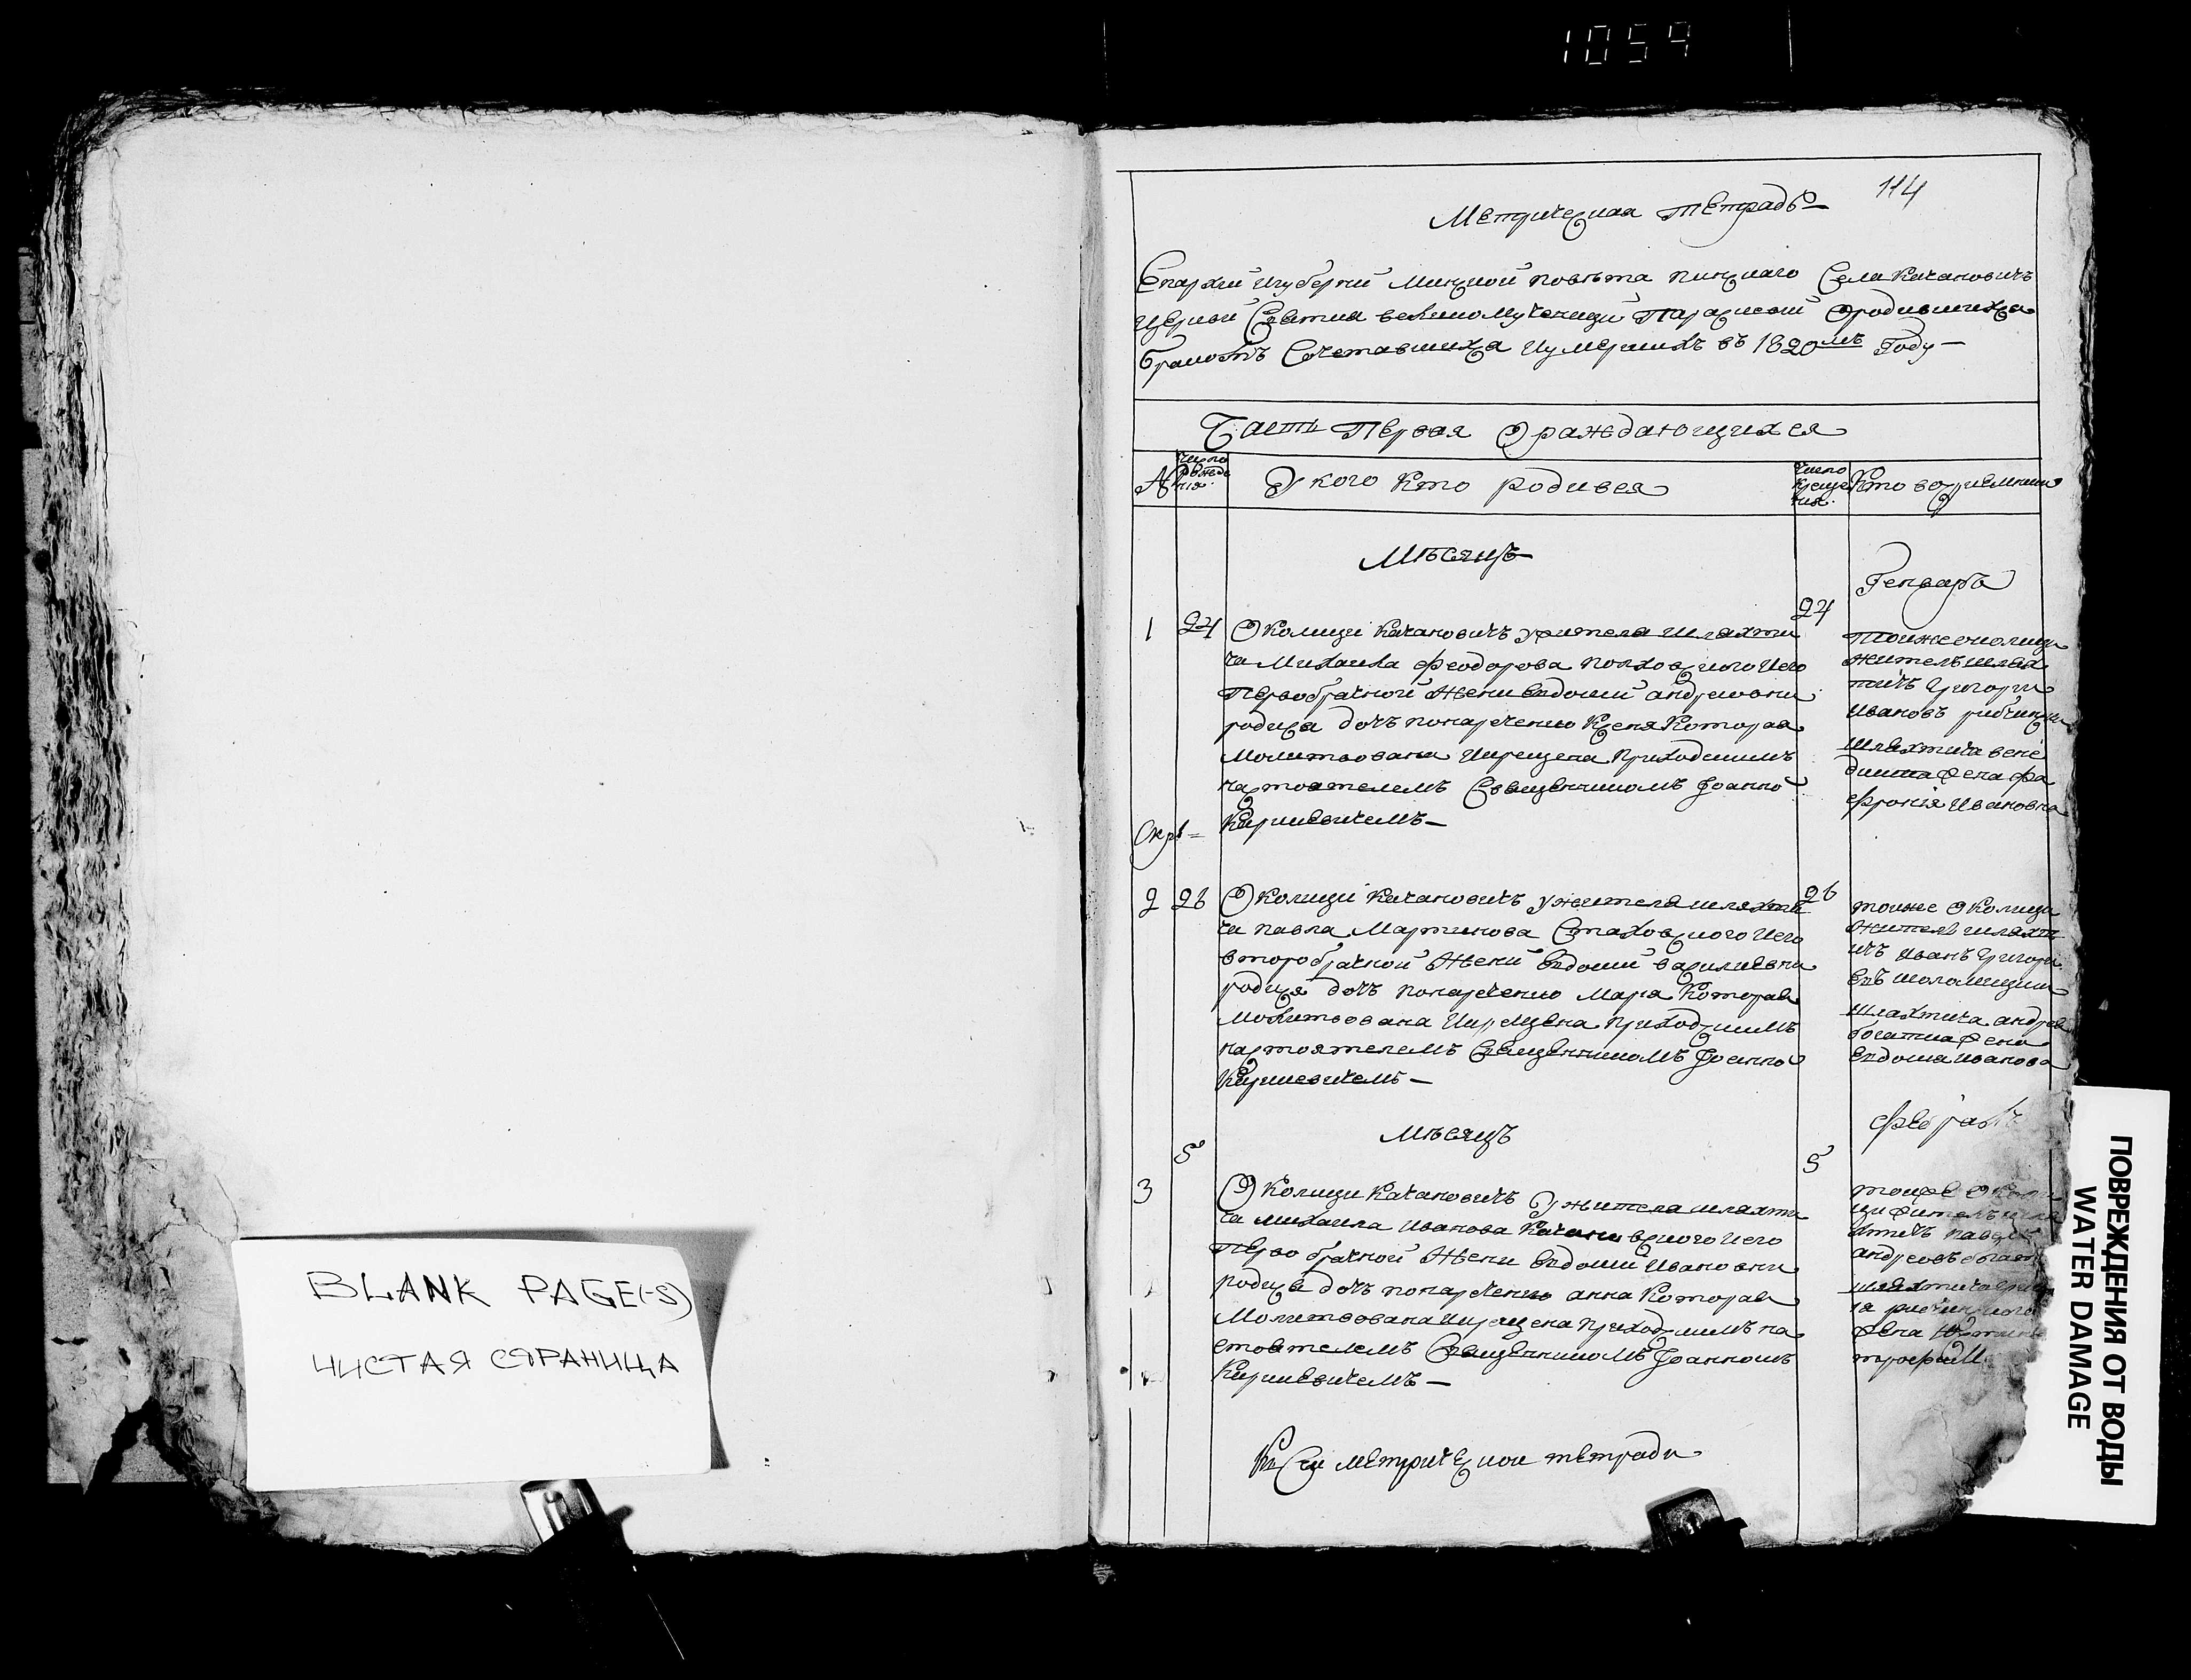 1059
114
Метрическая тетрадь
Епархіи Игубернӣ Минской повѣта пинскаго Села Качановичъ
Церкви Святыя великомученицы Параскевіи Ородившихся
бракомъ Сочетавшихся Иумершихъ въ 1820мъ Году
Часть Первая О раждающихся
№
число рожде нія.
У кого Кто родився
число креще нія.
Кто воспріемники
Мѣсяцъ
Генварь
1 24
Околици Качановичъ ужителя шляхти
ча Михаила Феодорова Полховского Иего
Первобрачной Жени Евдокии андреевни
родися дочъ понаречению Ксеня Которая
Молитвована Икрещена Приходскимъ
настоятелемъ Священникомъ Іоанно
Киркевичемъ
24
тоижеоколици
жителъшлях
тичъ Григори
Ивановъ
шляхтича вене
дикта жена фа
фронія Ивановна
2 26
Околици Качановичъ ужителя шляхти
ча павла Мартинова Стаховского Иего
второбрачной Жени Евдокии василиевни
родися дочъ понаречению Маря Которая
Молитвована Икрещена приходскимъ
настоятелемъ Священникомъ Іоанно
Киркевичемъ
26
тоиже Околици
жителъ шляхт
ичъ Иванъ Григори
евъ
шляхтича андрея
жена
Евдокиа Иванова
Мѣсяцъ
Февраль
3 5
Околици Качановичъ Ужителя шляхти
ча михаила Иванова Качановского Иего
Перво брачной Жени Евдокии Ивановни
родися дочъ понаречению анна Которая
Молитвована Икрещена приходскимъ на
стоятелемъ Священникомъ Іоанномъ
Киркевичемъ
5
тоиже Околи
ци жителъ шля
хтичъ павелъ
андреовъ
шляхтича
жена
Къ Сеи метрической тетради
BLANK PAGE(-S)
ЧИСТАЯ СТРАНИЦА
ПОВРЕЖДЕНИЯ ОТ ВОДЫ
WATER DAMAGE